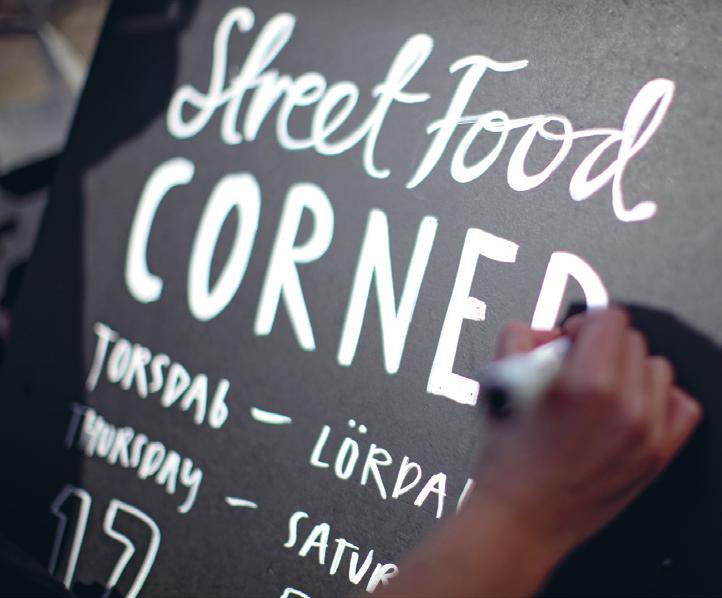 Street Food
CORNER
TORSDAG – LÖRDA
THURSDAY – SATUR
17